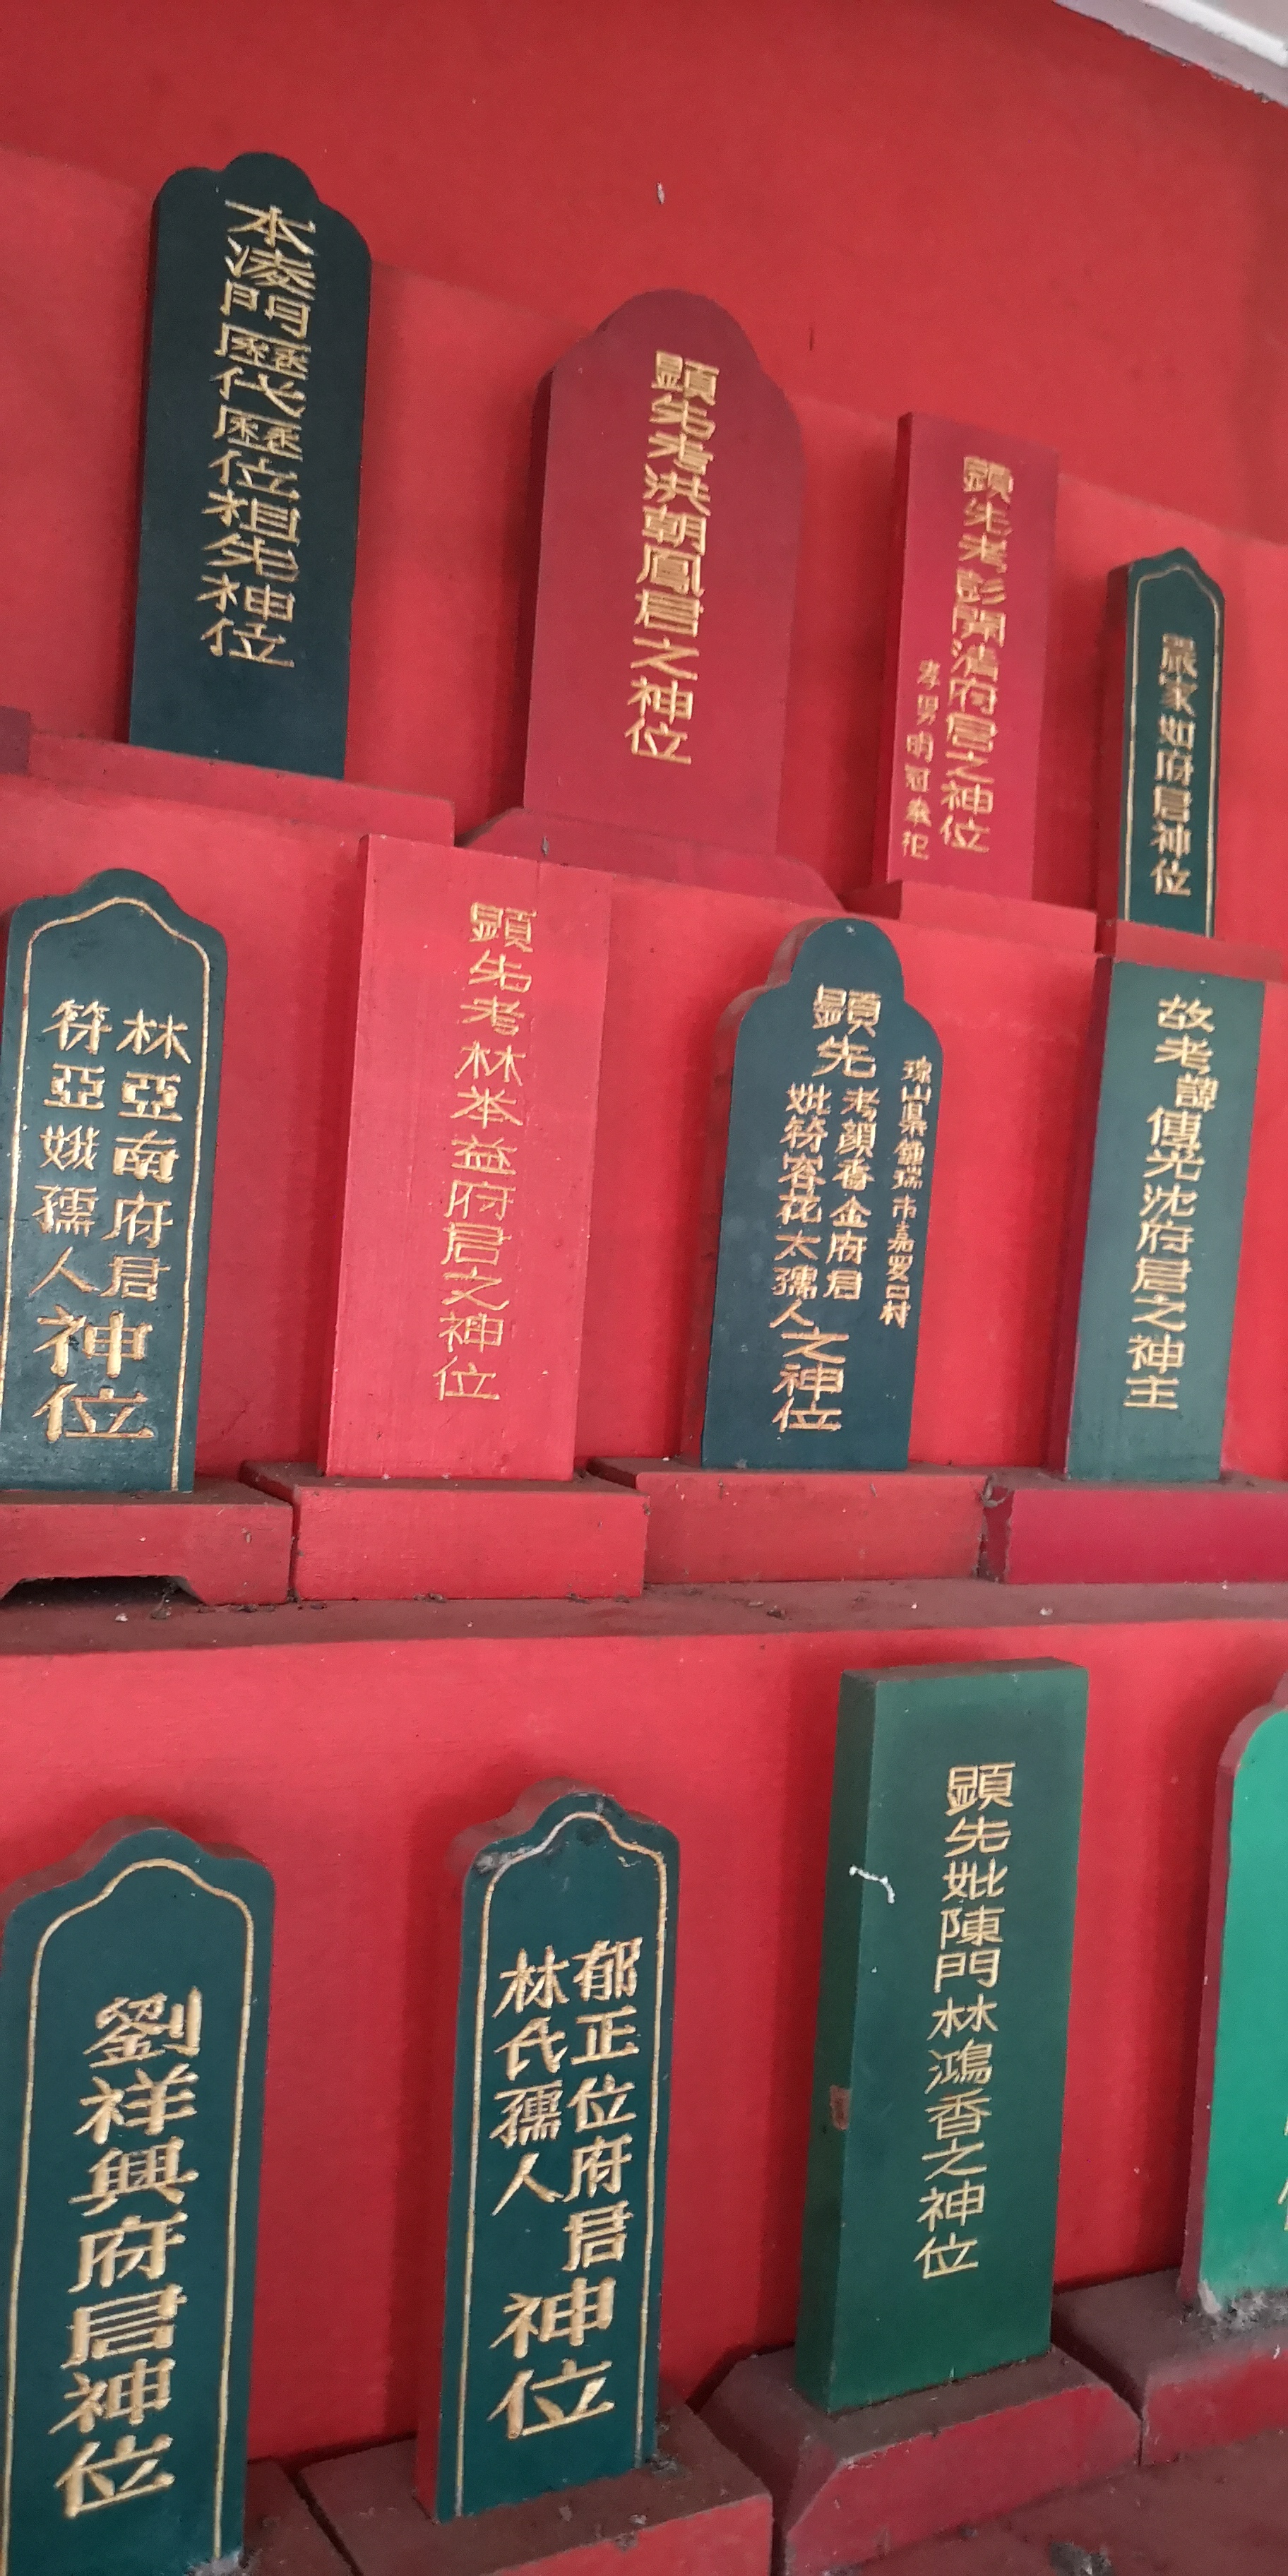 本凌門歷代歷位祖先神位
顯先考洪朝鳳君之神位
顯先考彭開清府君之神位
孝男明冠奉祀
嚴家如府君神位
林亞南府君
符亞娥孺人
神位
顯先考林本益府君之神位
瓊山県鋪瑞市嘉罗口村
顯先
考顏香金府君
妣符容花太孺人
之神位
故考諱傳光沈府君之神主
劉祥興府君神位
郁正位府君
林氏孺人
神位
顯先妣陳門林鴻香之神位